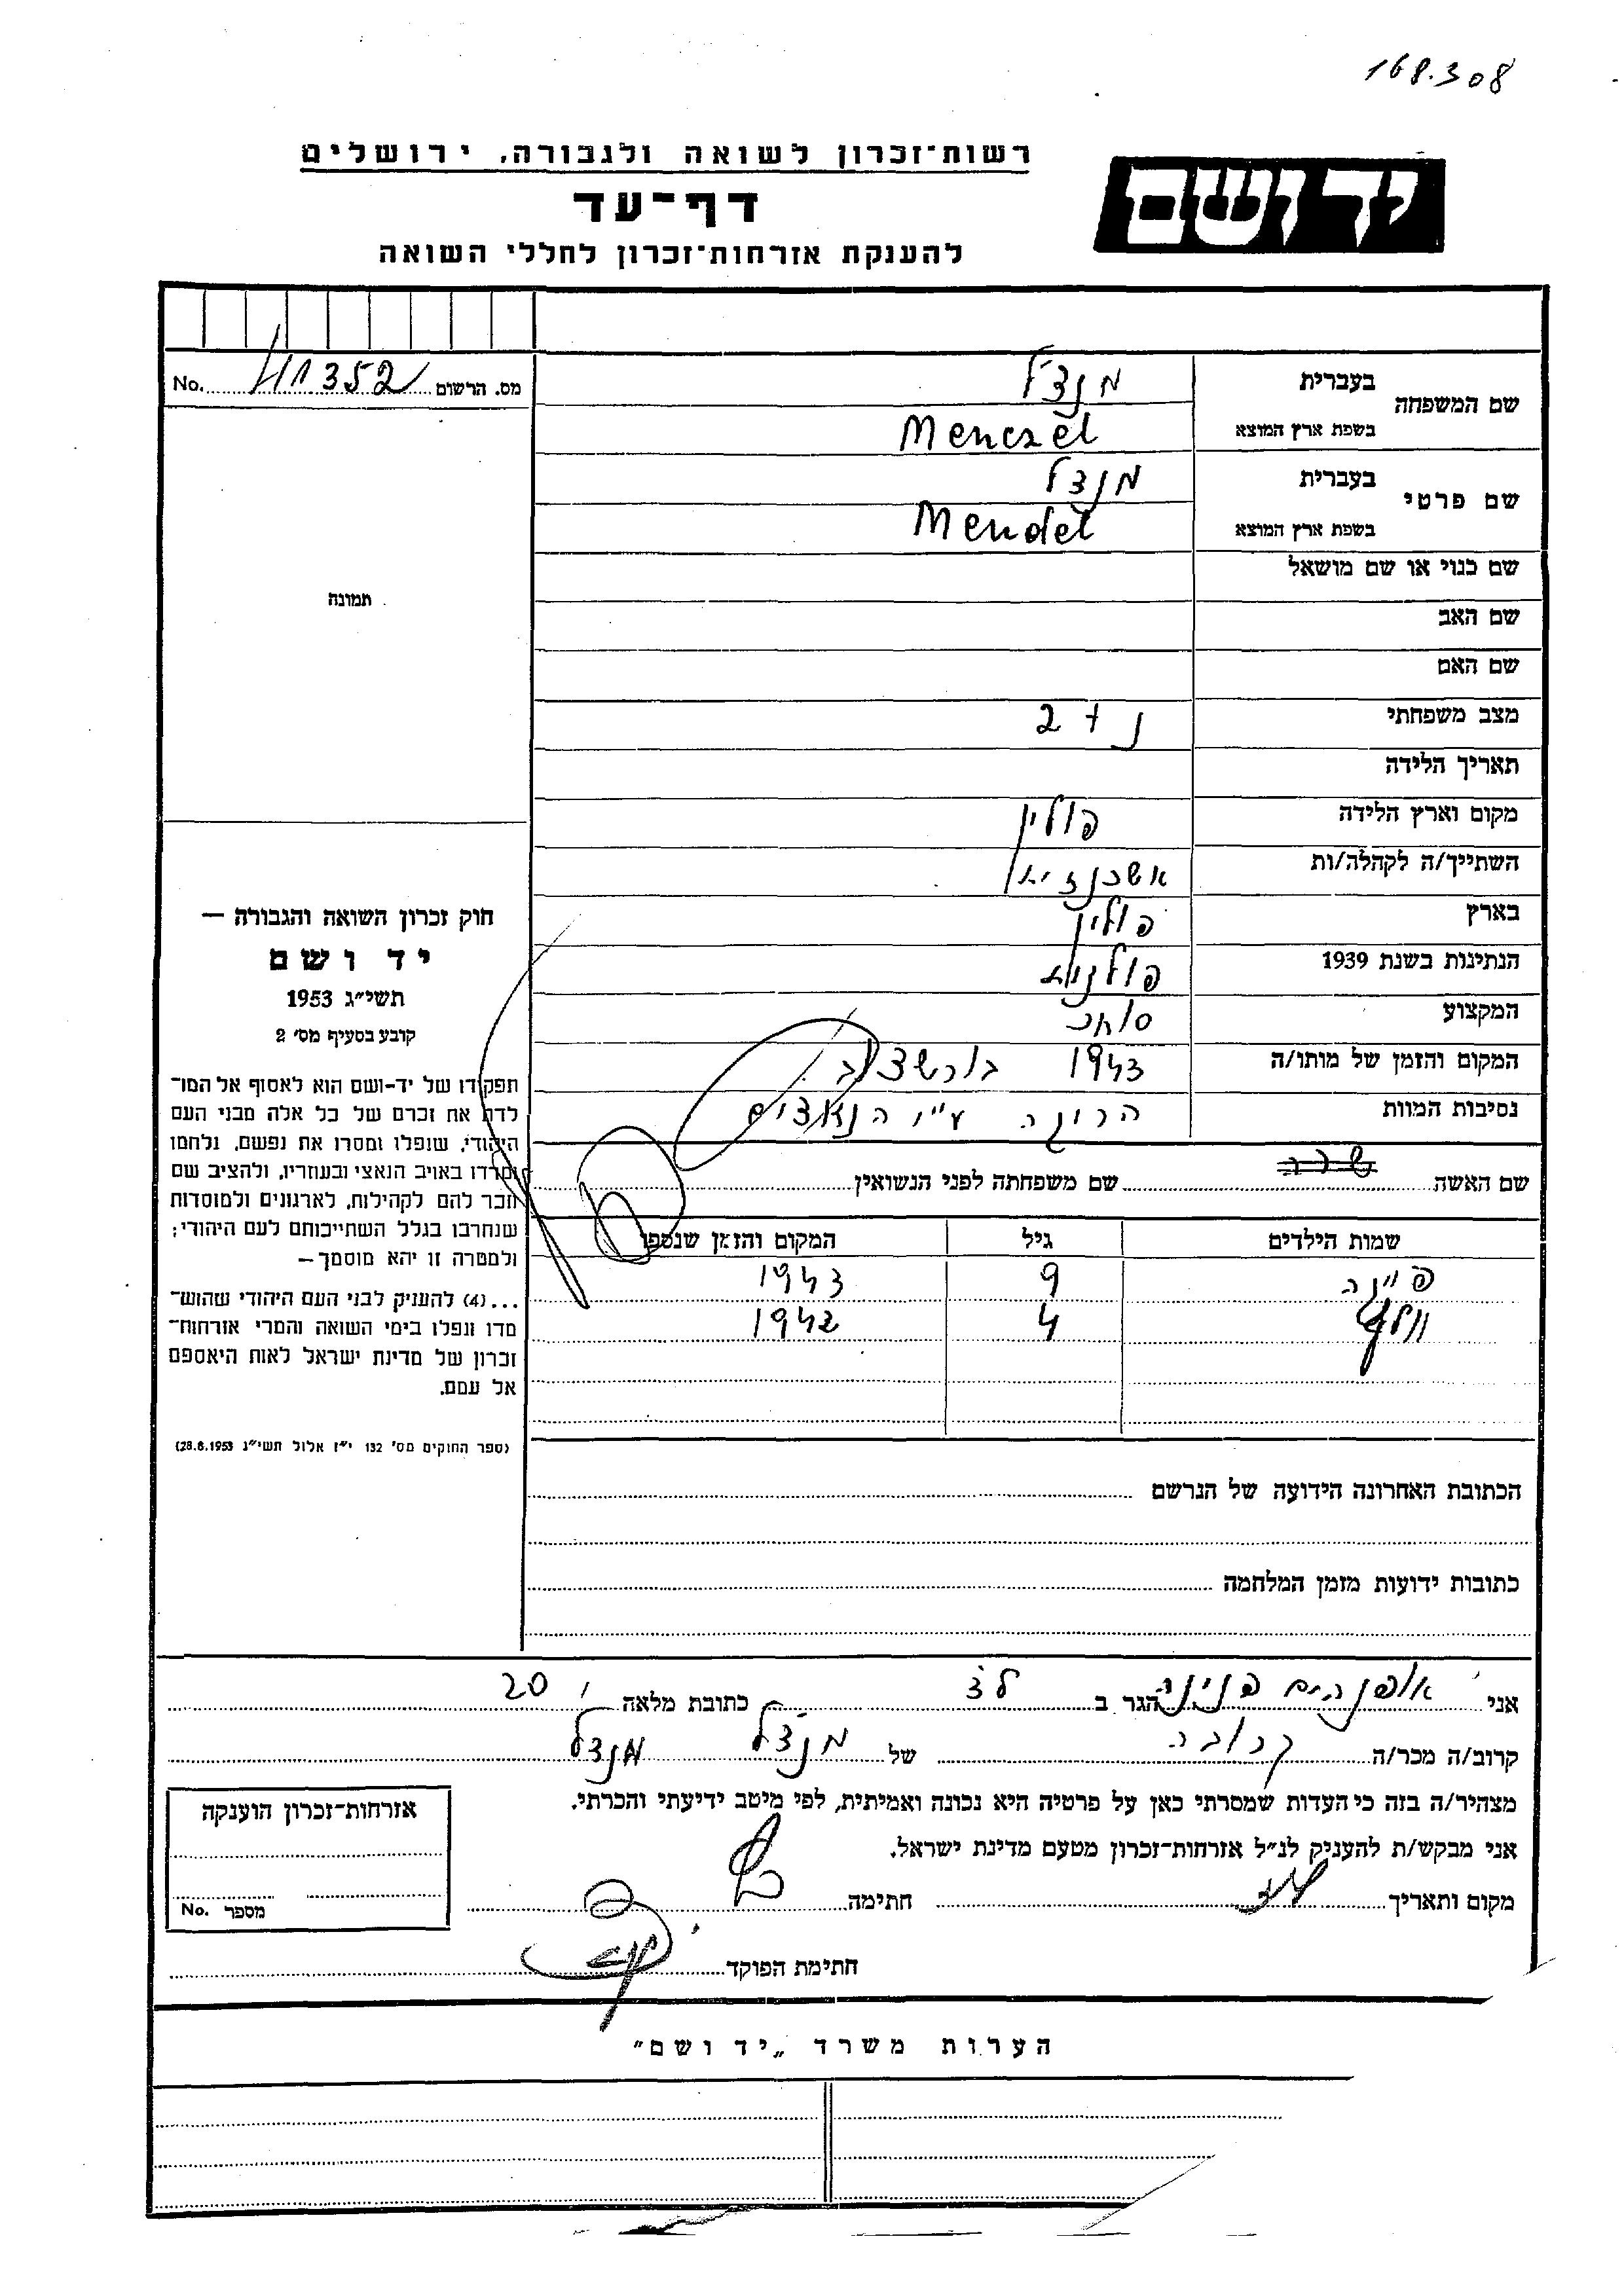 168.308
ידושם
רשות־זכרון לשואה ולגבורה, ירושלים
דף־עד
להענקת אזרחות־זכרון לחללי השואה
מס. הרשום 411352 No.
שם המשפחה
בעברית מנצ'ל
בשפת ארץ המוצא Menczel
שם פרטי
בעברית מנדל
בשפת ארץ המוצא Mendel
שם כנוי או שם מושאל
שם האב
שם האם
מצב משפחתי נ + 2
תאריך הלידה
מקום וארץ הלידה פולין
השתייך/ה לקהלה/ות אשכנזית
בארץ פולין
הנתינות בשנת 1939 פולנית
המקצוע סוחר
המקום והזמן של מותו/ה 1943 בורשצ'וב
נסיבות המוות ע"י הנאצים
שם האשה שרה שם משפחתה לפני הנשואין
שמות הילדים גיל המקום והזמן שנספו
9 1943
4 1942
הכתובת האחרונה הידועה של הנרשם
כתובות ידועות מזמן המלחמה
תמונה
חוק זכרון השואה והגבורה —
יד ושם
תשי״ג 1953
קובע בסעיף מס׳ 2
תפקידו של יד-ושם הוא לאסוף אל המו־
לדת את זכרם של כל אלה מבני העם
היהודי, שנפלו ומסרו את נפשם, נלחמו
ומרדו באויב הנאצי ובעוזריו, ולהציב שם
וזכר להם לקהילות, לארגונים ולמוסדות
שנחרבו בגלל השתייכותם לעם היהודי;
ולמטרה זו יהא מוסמך—
...(4) להעניק לבני העם היהודי שהוש־
מדו ונפלו בימי השואה והמרי אזרחות־
זכרון של מדינת ישראל לאות היאספם
אל עמם.
(ספר החוקים מס׳ 132 י״ז אלול תשי״ג 28.8.1953)
אני פנינה הגר ב כתובת מלאה 20
קרוב/ה מכר/ה קרובה של מנצ'ל מנדל
מצהיר/ה בזה כי העדות שמסרתי כאן על פרטיה היא נכונה ואמיתית, לפי מיטב ידיעתי והכרתי.
אני מבקש/ת להעניק לנ״ל אזרחות־זכרון מטעם מדינת ישראל.
מקום ותאריך חתימה
חתימת הפוקד
אזרחות־זכרון הוענקה
מספר No.
הערות משרד „יד ושם״